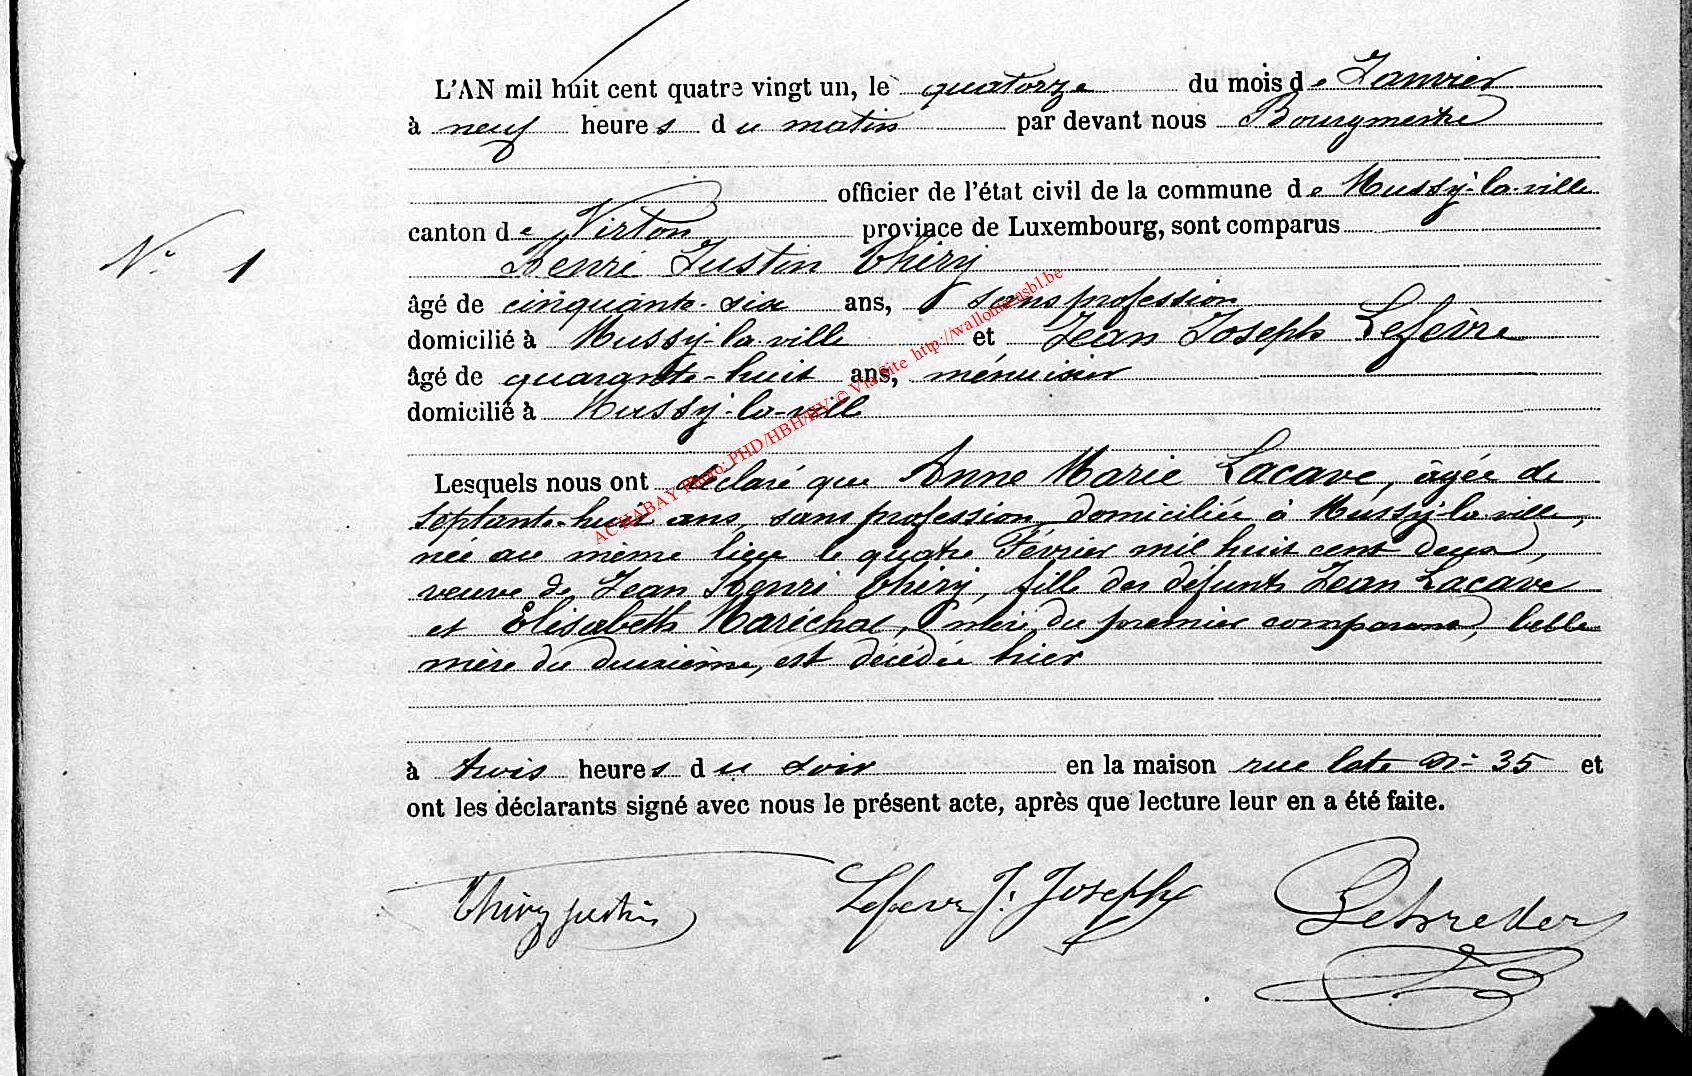 L'AN mil huit cent quatre vingt un, le quatorze du mois de Janvier
à neuf heures du matin par devant nous Bourgmestre
officier de l'état civil de la commune de Mussy-la-ville
N° 1
canton de Virton province de Luxembourg, sont comparus
Henri Justin Thiry
âgé de cinquante-six ans, sans profession
domicilié à Mussy-la-ville et Jean Joseph Lefèvre
âgé de quarante-huit ans, ménuisier
domicilié à Mussy-la-ville
AC HABAY Photo: PHD/HBH/HV © Via Site http://wallonia-asbl.be
Lesquels nous ont déclaré que Anne Marie Lacave, âgée de
septante-huit ans, sans profession, domiciliée à Mussy-la-ville,
née au même lieu le quatre Février mil huit cent deux,
veuve de Jean Henri Thiry, fille des défunts Jean Lacave
et Elisabeth Maréchal, mère du premier comparant, belle
mère du deuxième, est décédée hier
à trois heures du soir en la maison rue late N° 35 et
ont les déclarants signé avec nous le présent acte, après que lecture leur en a été faite.
Thiry justin Lefevre J. Joseph